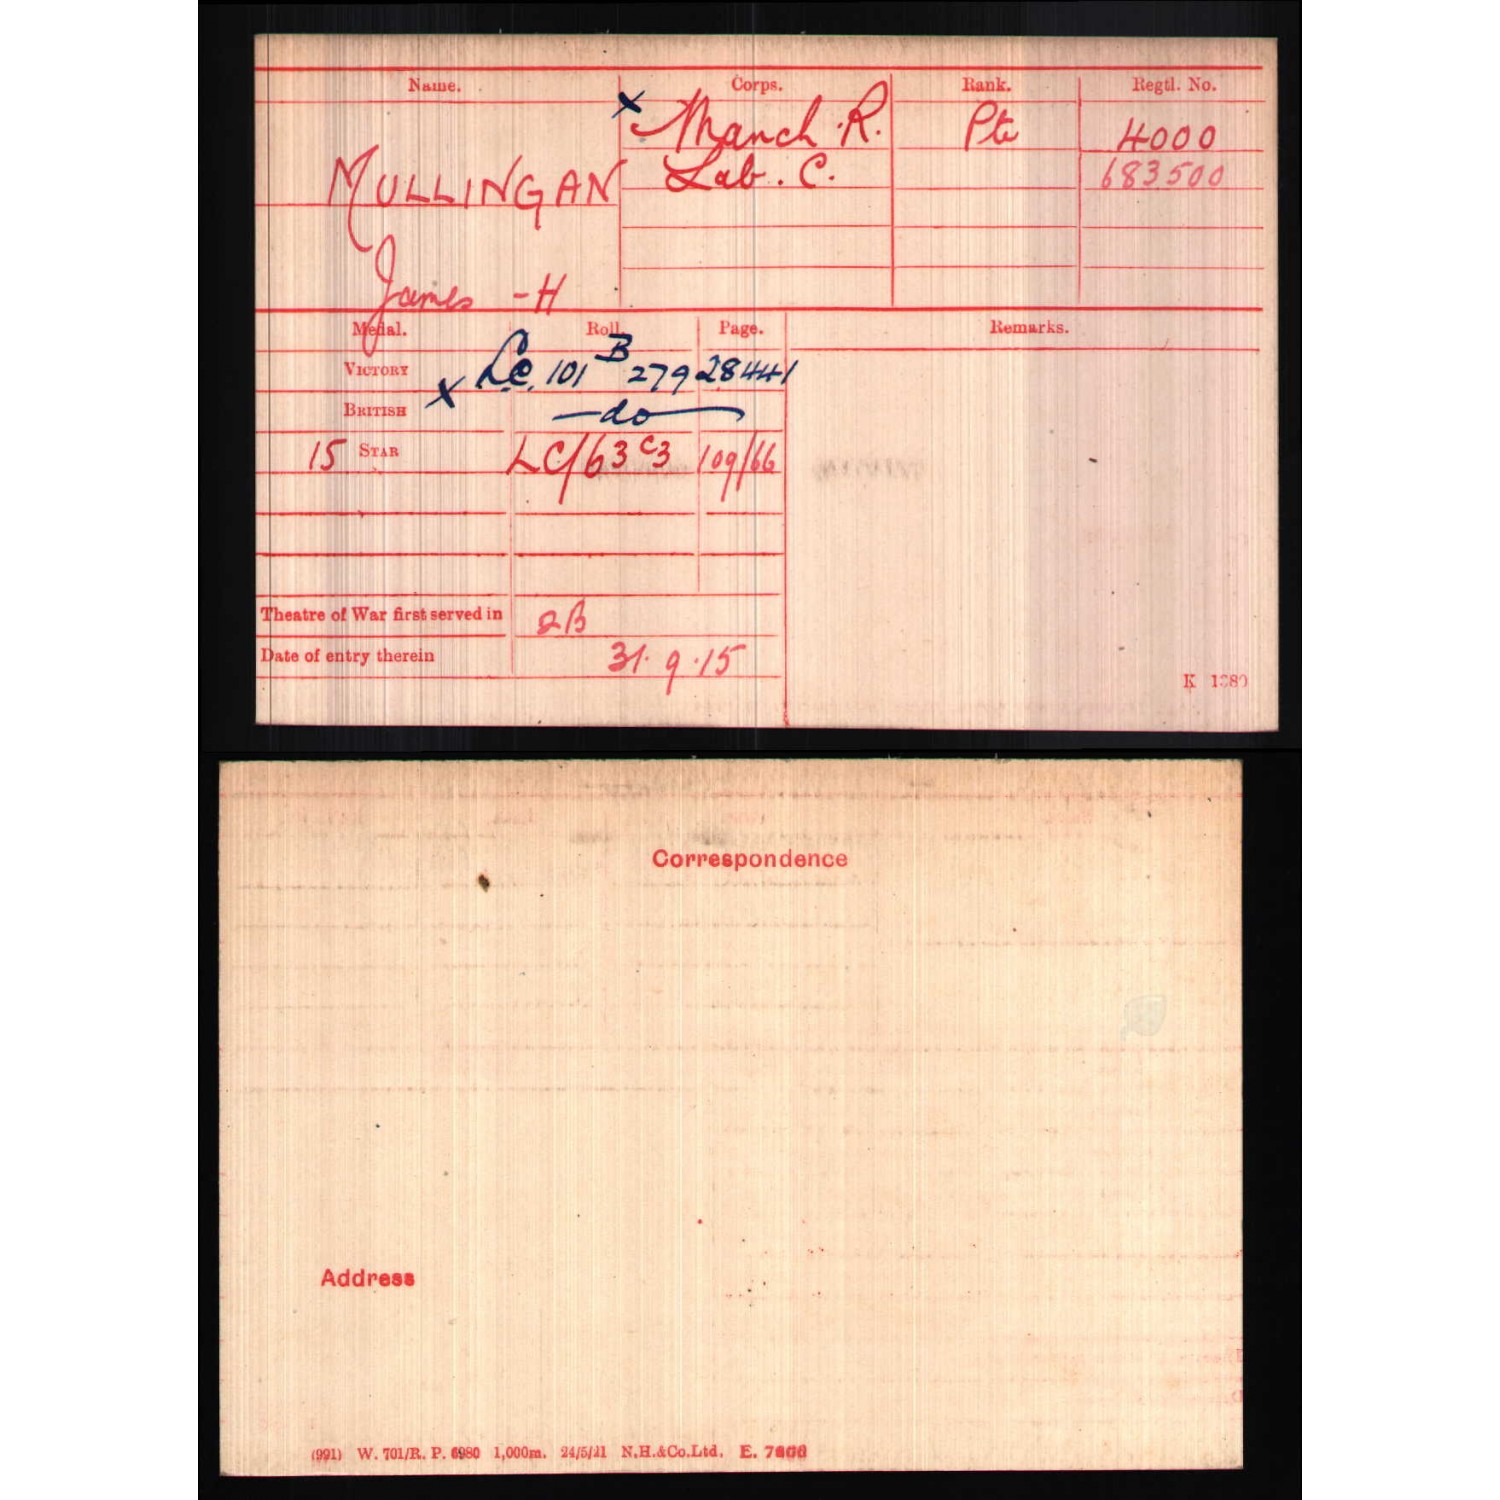 Name. Corps. Rank. Regtl. No.
x Manch. R. Pte 4000
MULLINGAN Lab. C. 683500
James - H
Medal. Roll. Page. Remarks.
VICTORY LC. 101 B 279 28441
x
BRITISH do
15 STAR LC/63 C3 109/66
Theatre of War first served in 2B
Date of entry therein 31.9.15
K 1380
Correspondence
Address
(991) W. 701/R. P. 6980 1,000m. 24/5/21 N.H.&Co.Ltd.